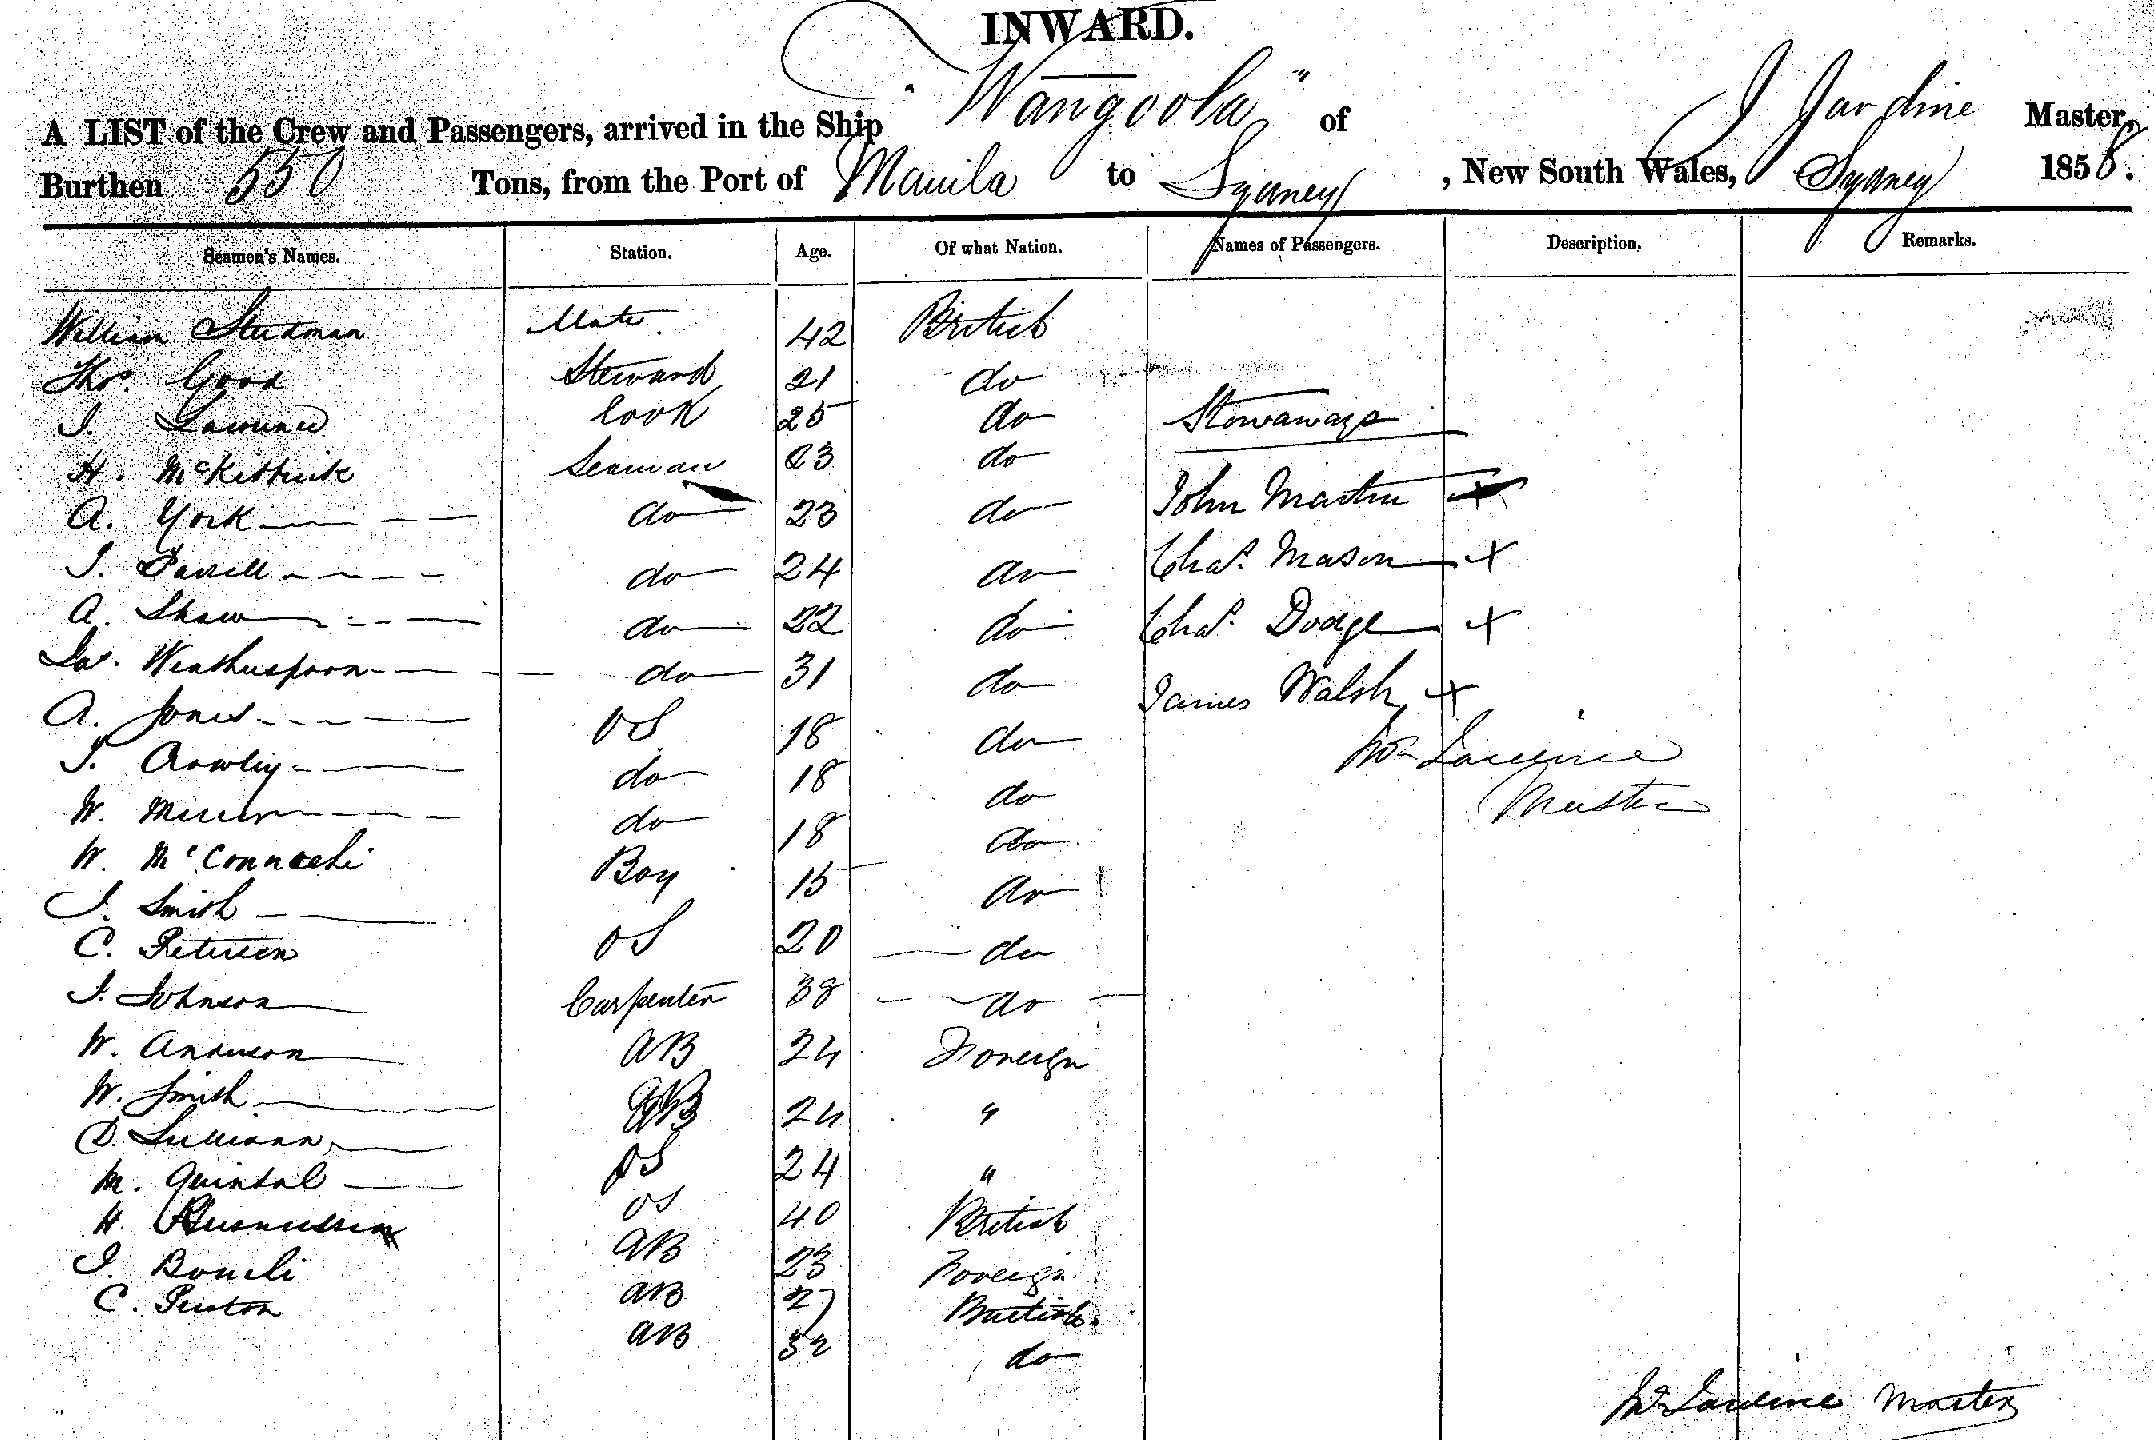 INWARD.
A LIST of the Crew and Passengers, arrived in the Ship "Wangoola" of J Jardine Master,
Burthen 550 Tons, from the Port of Manila to Sydney, New South Wales, Sydney 1858.
Seamen's Names. Station. Age. Of what Nation. Names of Passengers. Description. Remarks.
William Stedman Mate 42 British
Thos. Good Steward 21 do
J. Lawrence Cook 25 do Stowaways
H. McKettrick Seaman 23 do
A. York do 23 do John Martin x
J. Farrell do 24 do Chas. Mason x
A. Shaw do 22 do Chas. Dodge x
Jas. Weatherspoon do 31 do James Walsh x
A. Jones OS 18 do Jno Jardine
J. Crowley do 18 do Master
W. do 18 do
W. McConnachi Boy 15 do
J. Smith OS 20 do
C. Petersen Carpenter 38 do
J. Johnson AB 24 Foreign
W. Anderson AB 24 "
W. Smith OS 24 "
D. Sullivan OS 40 British
M. Quintal AB 23 Foreign
H. Rasmussen AB 27 British
J. AB 32 do
C.
Jno Jardine Master